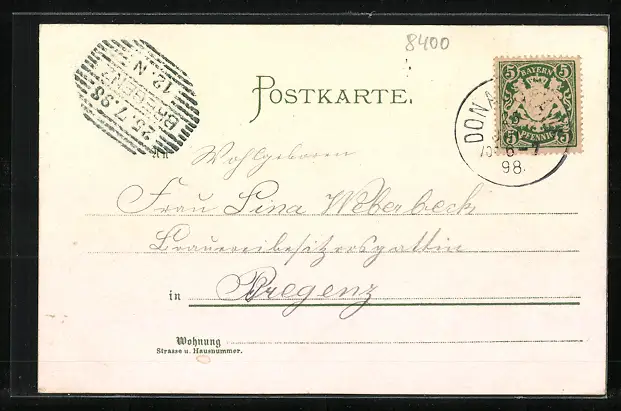 8400
BREGENZ
25.7.98
12.N
5 BAYERN 5
5 PFENNIG 5
POSTKARTE.
DONA
7
98.
An
Wohlgeboren
Frau Lina Weberbeck
Brauereibesitzersgattin
in Bregenz
Wohnung
Strasse u. Hausnummer.